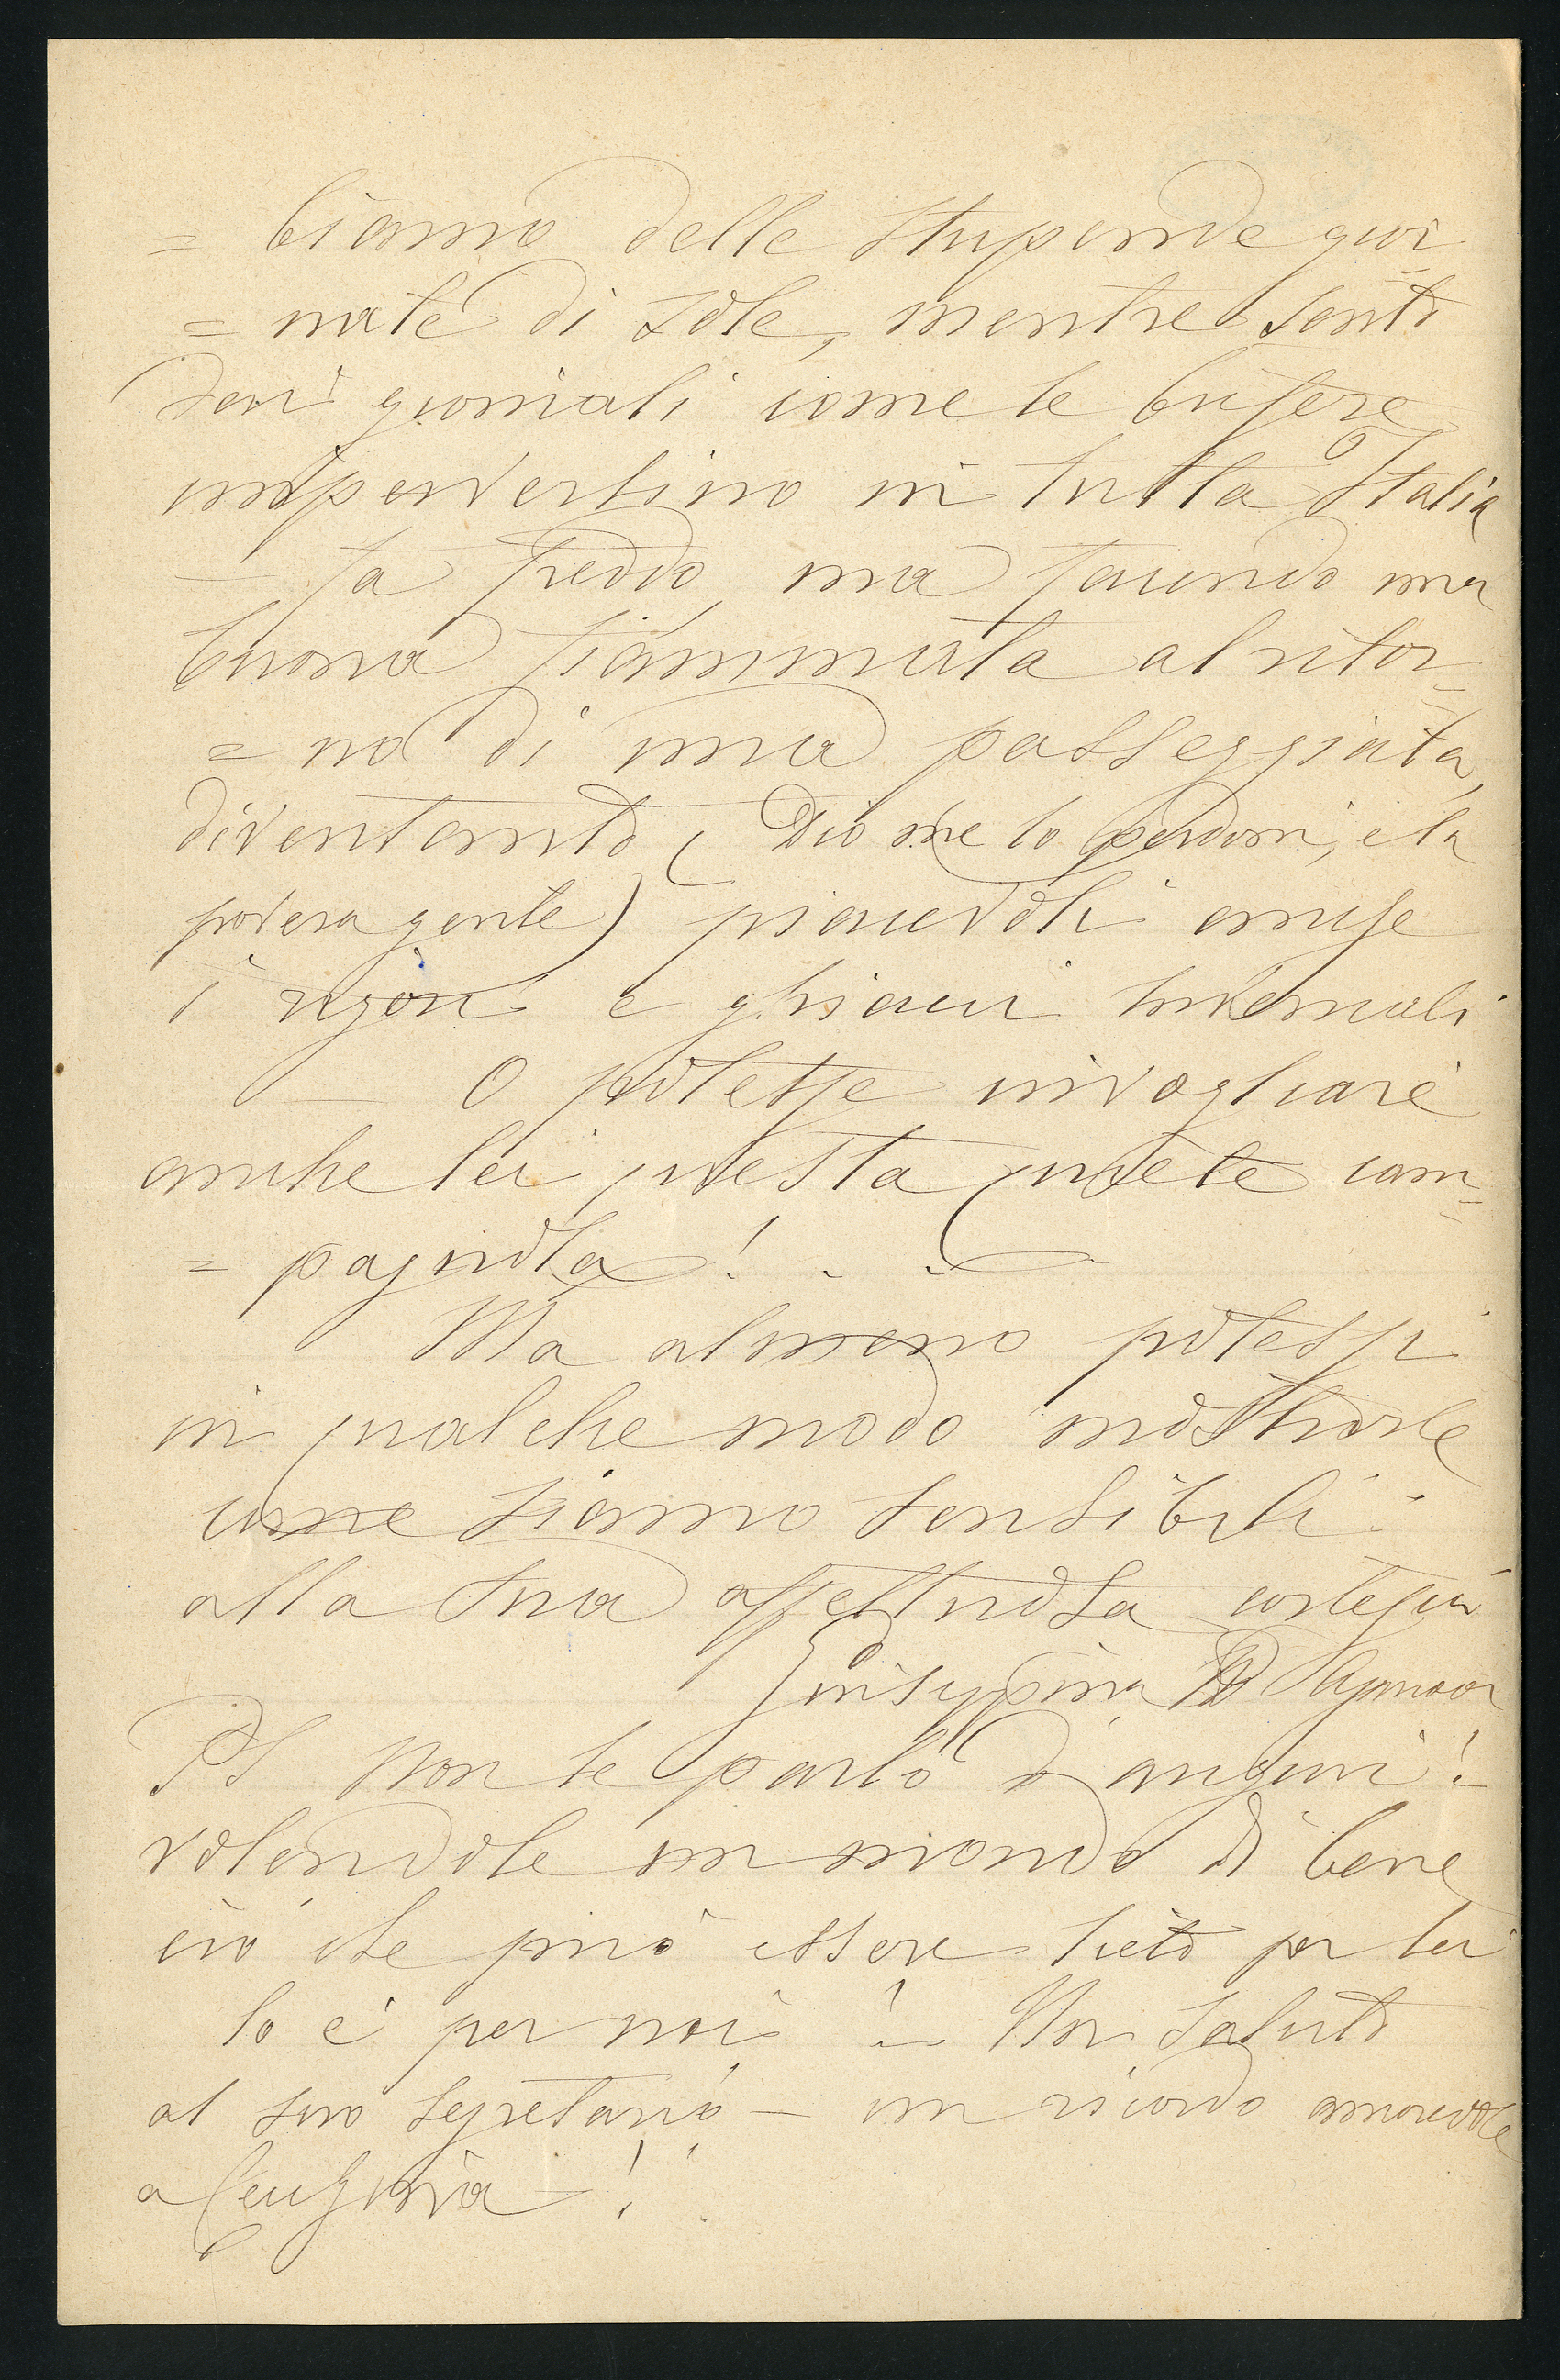 = biamo delle stupende gior
= nate di sole, mentre sento
dai giornali come le bufere
imperversino in tutta Italia
— fa freddo ma facendo una
buona fiammata al ritor=
= no di una passeggiata,
diventando (Dio me lo perdoni, e la
povera gente) piacevoli anche
i rigori e ghiacci invernali
— O potesse invogliare
anche lei questa quiete cam=
= pagnola! . .
Ma almeno potessi
in qualche modo mostrarle
come siamo sensibili
alla sua affettuosa cortesia
Giuseppina
PS Non le parlo d'auguri!
volendole un mondo di bene
ciò che può essere lieto per lei
lo è per noi! Un saluto
al suo segretario — un ricordo amorevole
a Eugenia!